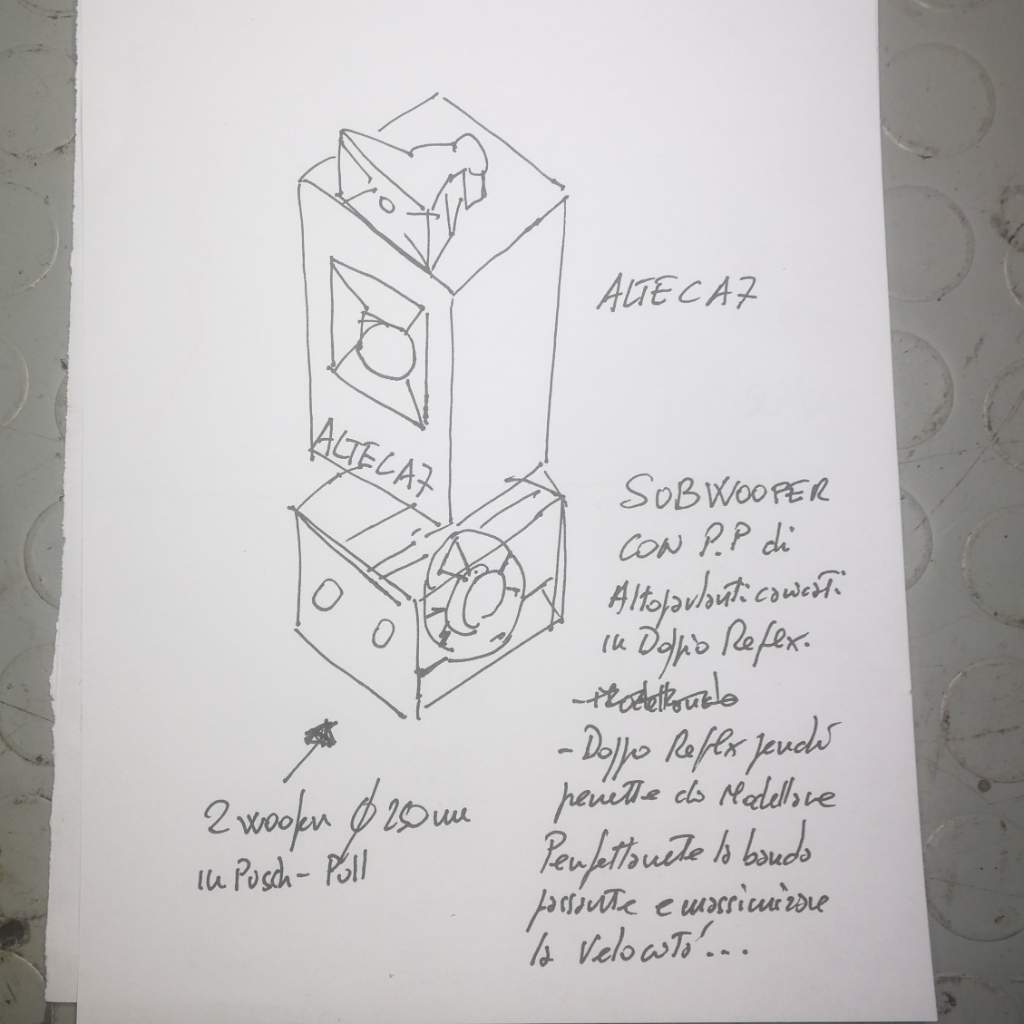 ALTEC A7
ALTEC A7
SUBWOOFER
CON P.P di
Altoparlanti caricati
in Doppio Reflex.
- Modellando
- Doppio Reflex perché
permette di Modellare
Perfettamente la banda
passante e massimizzare
la velocità...
2 woofer Ø 250 mm
in Pusch-Pull